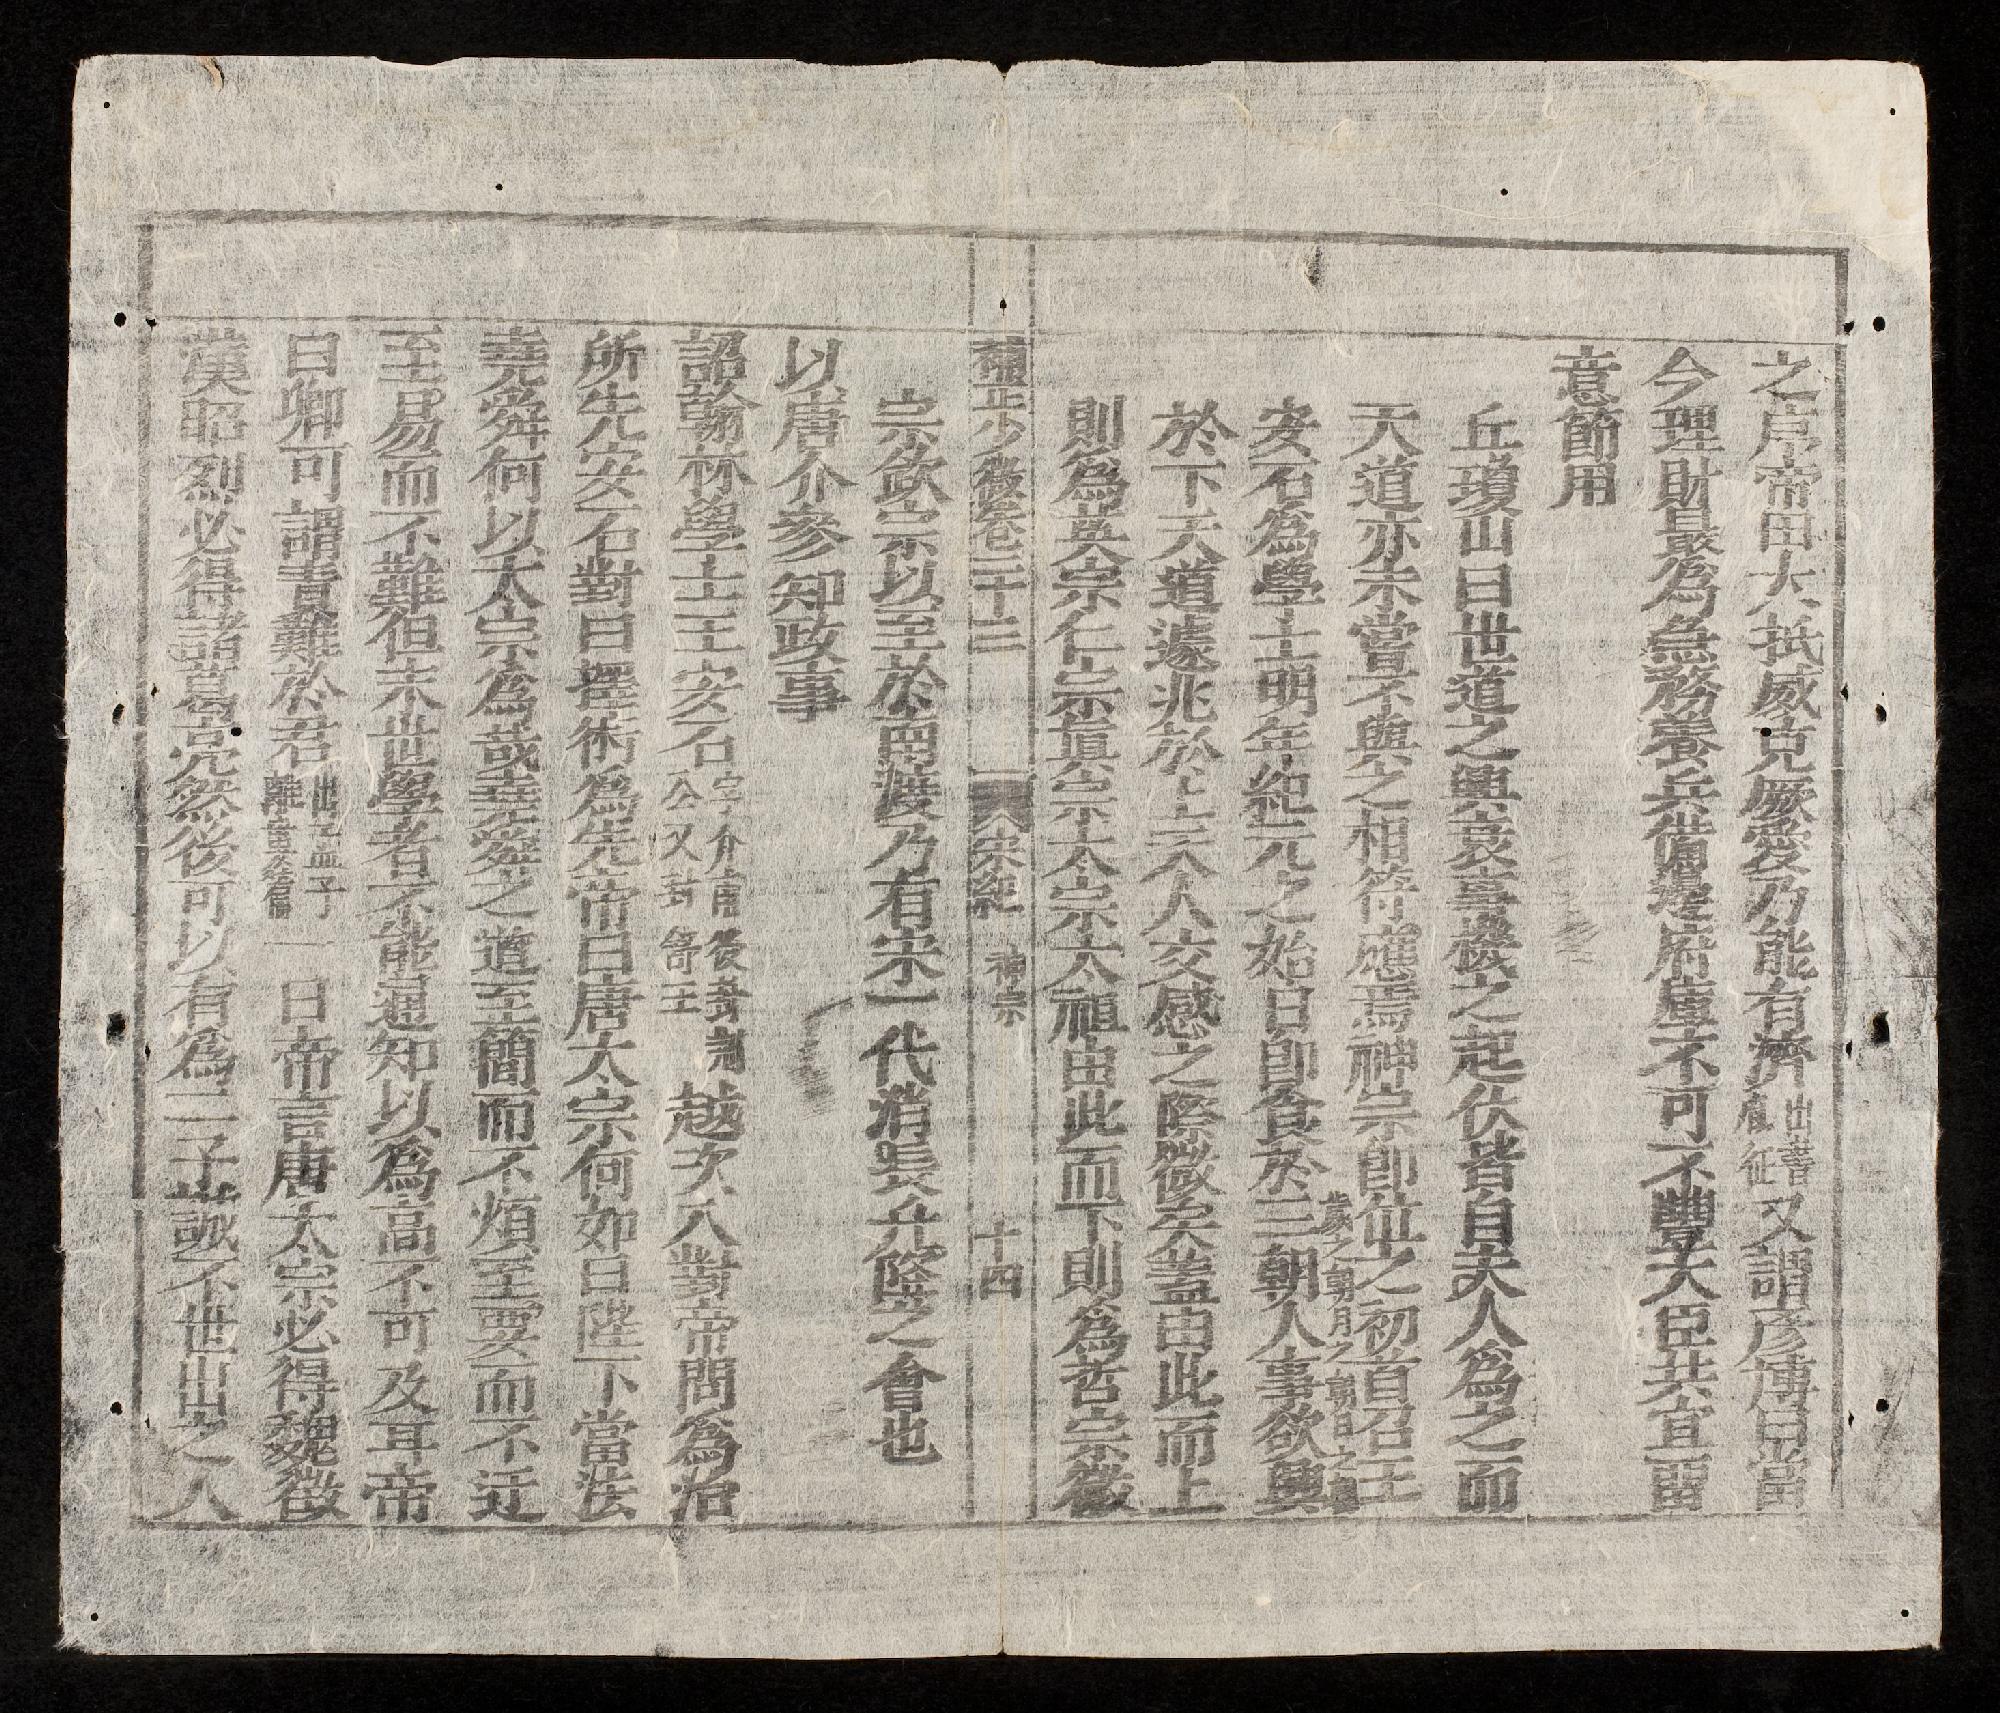 之序帝曰大抵威克厥愛乃能有濟出書胤征又謂彦博曰當
今理財最爲急務養兵備邊府庫不可不豐大臣共宜留
意節用
丘瓊山曰世道之興衰事機之起伏皆自夫人爲之而
天道亦未嘗不與之相符應焉神宗即位之初首召王
安石爲學士明年紀元之始日即食於三朝歲之朝月之朝日之朝人事欲興
於下天道遽兆於上天人交感之際微矣盖由此而上
則爲英宗仁宗眞宗太宗太祖由此而下則爲哲宗徽
補正少微卷二十三 宋紀 神宗 十四
宗欽宗以至於南渡乃有宋一代消長升降之會也
以唐介參知政事
詔翰林學士王安石字介甫後封荆公又封舒王越次入對帝問爲治
所先安石對曰擇術爲先帝曰唐太宗何如曰陛下當法
堯舜何以太宗爲哉堯舜之道至簡而不煩至要而不迂
至易而不難但末世學者不能通知以爲高不可及耳帝
曰卿可謂責難於君出孟子離婁篇一日帝言唐太宗必得魏徵
漢昭烈必得諸葛亮然後可以有爲二子誠不世出之人